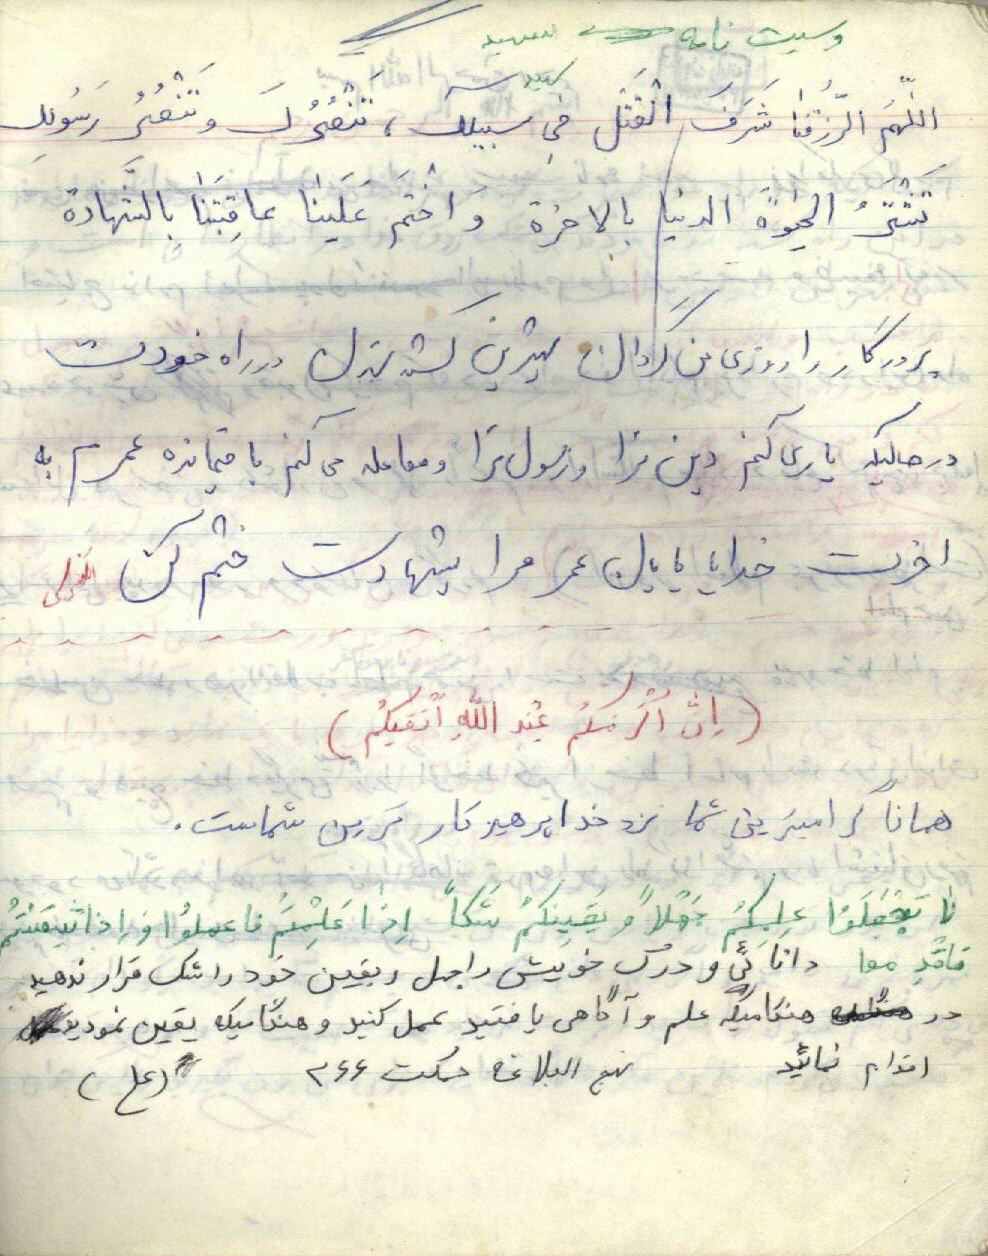 وصیت نامه شهید
اللّهُمَ الرّزُقنا شَرَفَ الْقَتْل فی سبیلک، تَنْصُرُکَ و تَنْصُرُ رَسُولِکَ
تَشْتَرُ الحَیوةَ الدنیا بالاخرة وَ اخْتِم عَلَینا عاقِبَتَنا بِالشَهادة
پروردگارا روزی من گردان بهترین کشته شدن در راه خودت
در حالیکه یاری کنم دین ترا و رسول ترا و معامله می کنم باقیمانده عمرم به
اخرت خدایا پایان عمر مرا بشهادت ختم کن
(اِنَّ اَکْرَمَکُم عِنْدَ اللّهِ اَتْقیکُم)
همانا گرامیترین شما نزد خدا پرهیزکارترین شماست.
لا تَجْعَلُوا عِلمِکُمْ جَهْلاً وَ یَقینِکُمْ شَکاً اِذا عَلِمْتُم فاعملوُا وَ اِذا تَیَقَنْتُمْ
فاقدِموا دانائی و درک خویش را جهل و یقین خود را شک قرار ندهید
در هنگامیکه علم و آگاهی یافتید عمل کنید و هنگامیکه یقین نمودید
اقدام نمائید نهج البلاغه حکمت ۲۶۶ (ع)